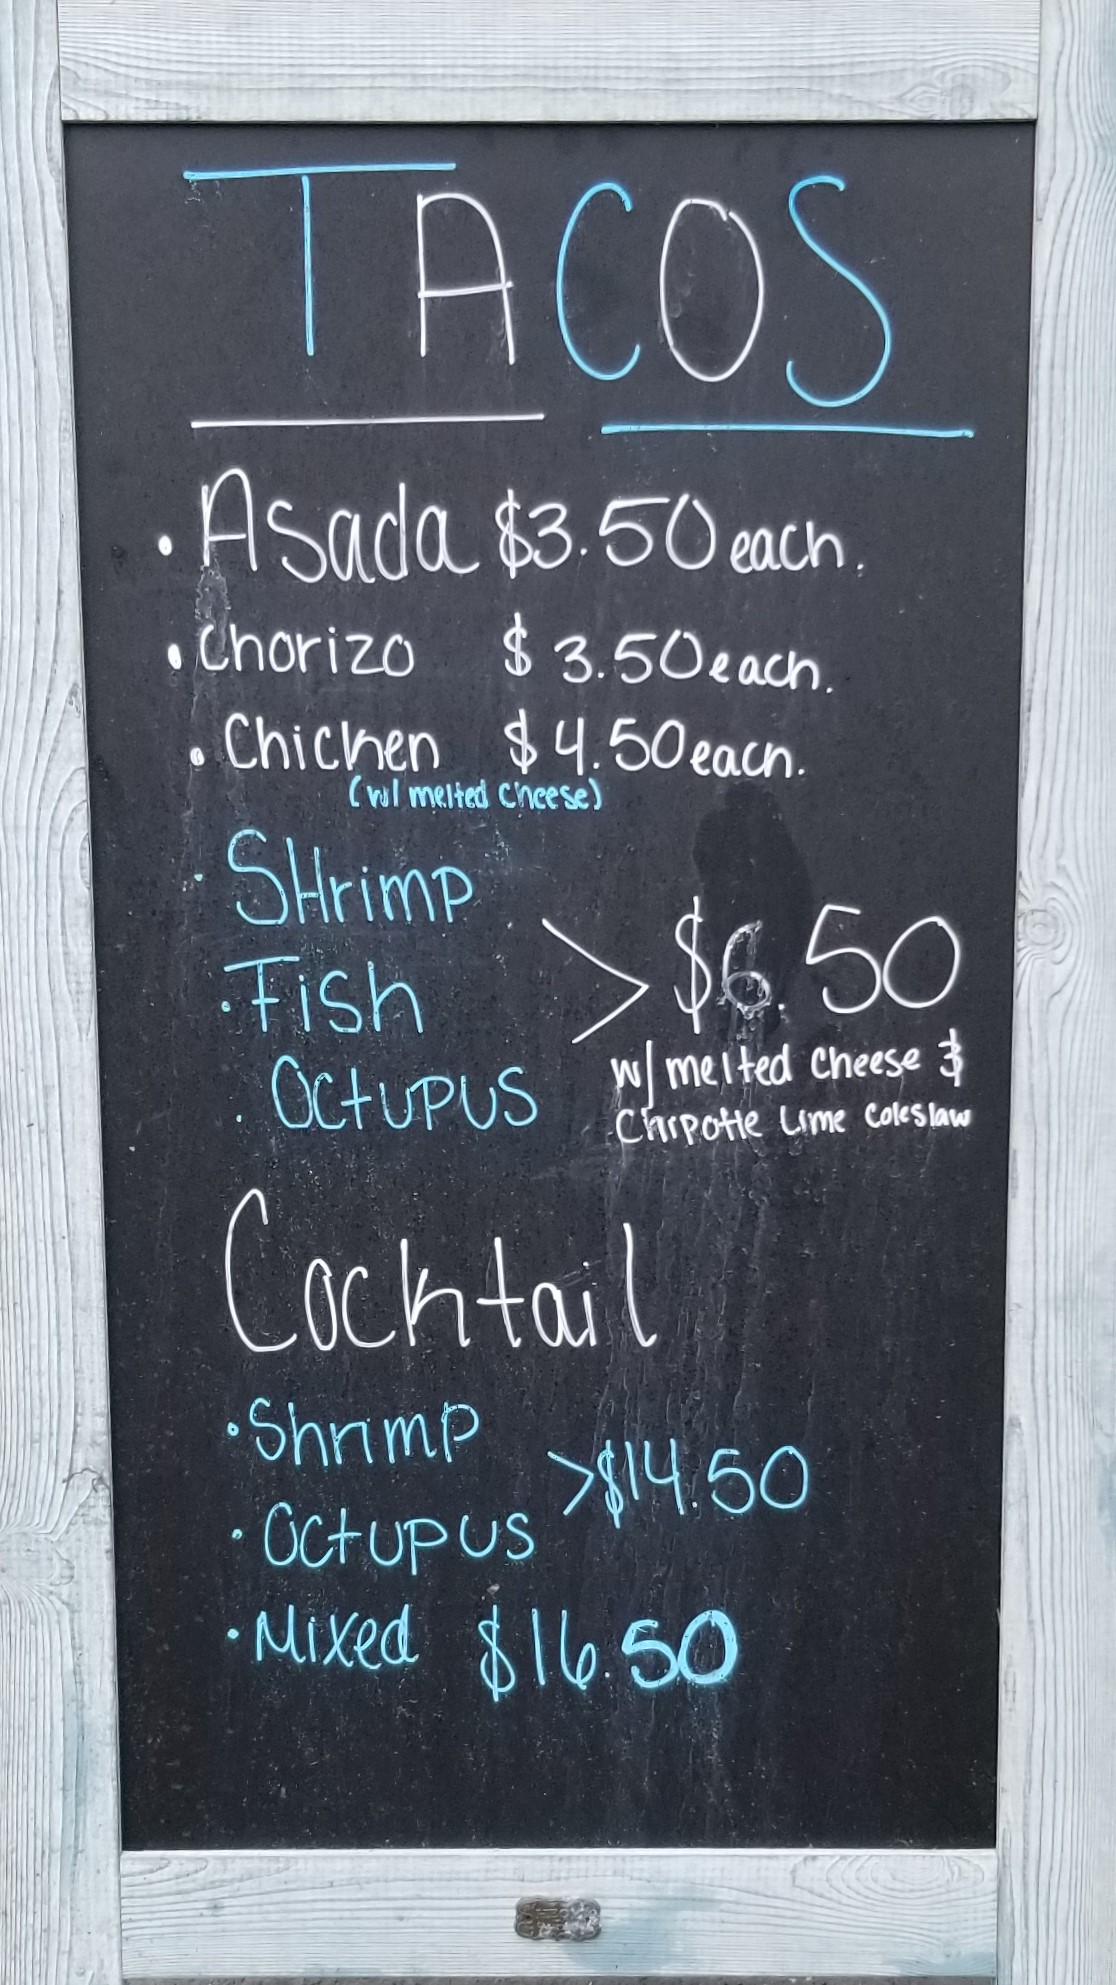 TACOS
• Asada $3.50 each.
• Chorizo $3.50 each.
• Chicken $4.50 each.
(w/ melted Cheese)
• SHrimp
• Fish
> $6.50
w/ melted Cheese &
• OCtuPUS
Chipotte Lime Coleslaw
Cocktail
• Shrimp
> $14.50
• OCtuPUS
• Mixed $16.50